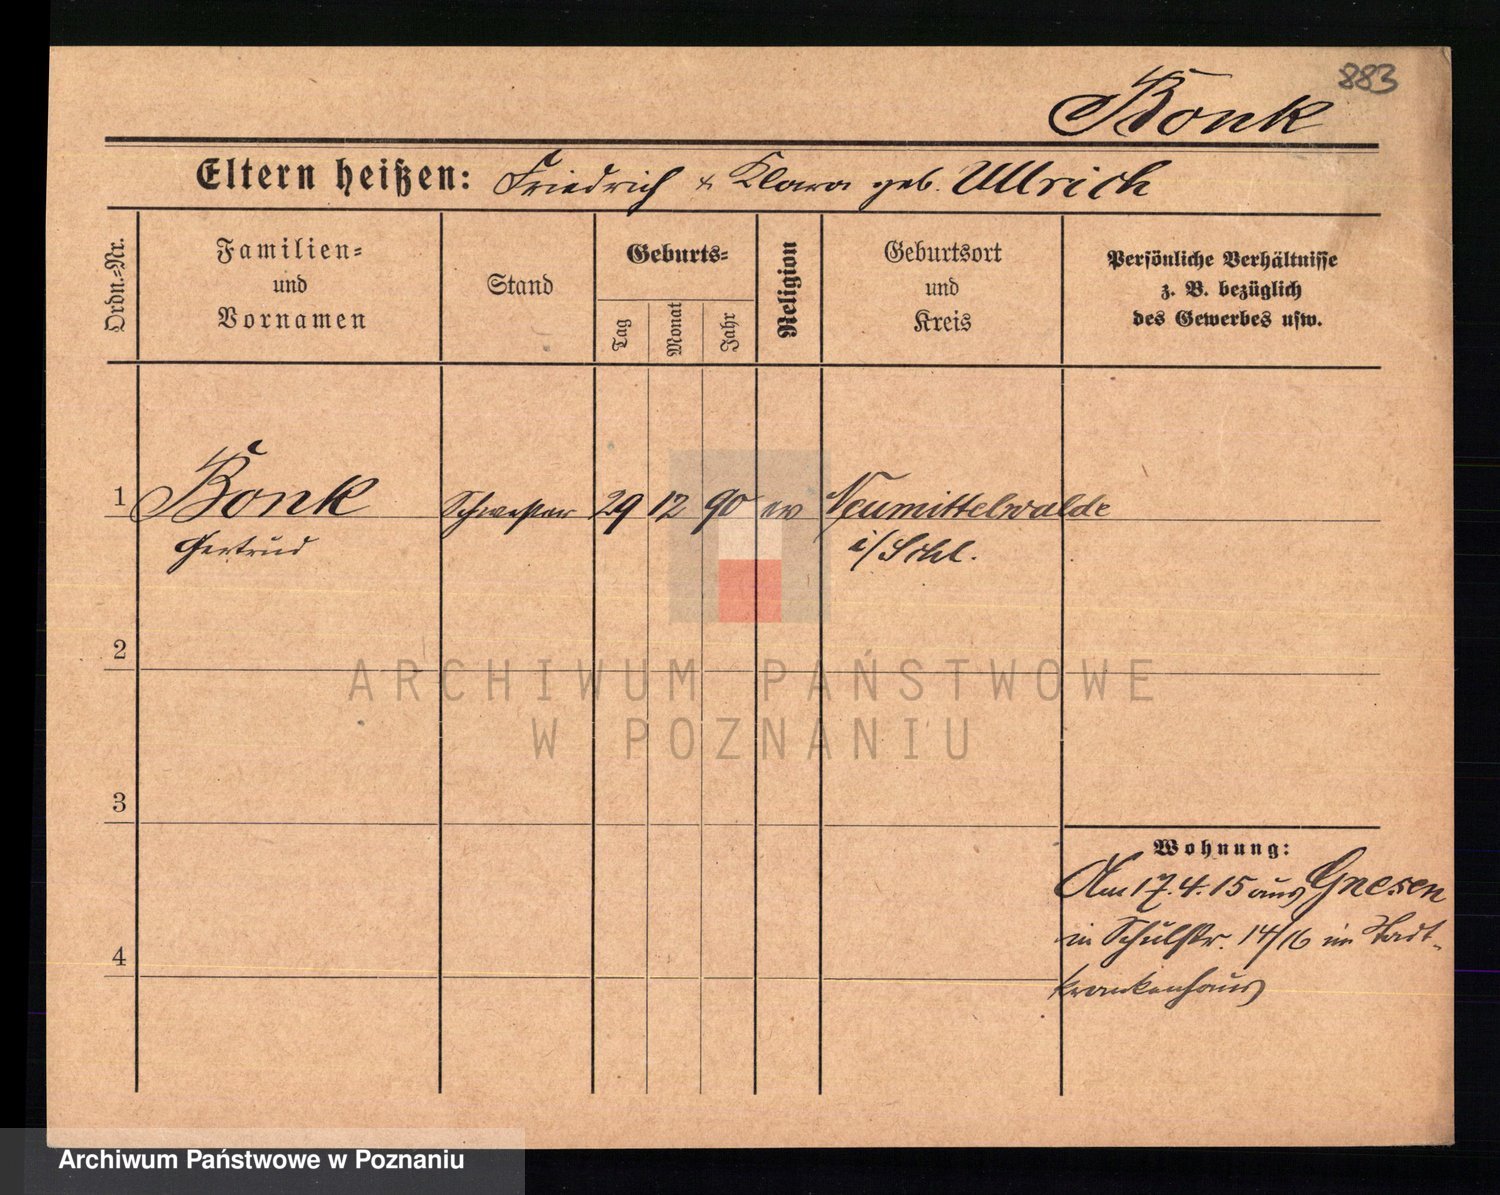 883
Bonk
Eltern heißen: Friedrich & Klara geb. Ullrich
Ordn.-Nr.
Familien-
und
Vornamen
Stand
Geburts-
Tag
Monat
Jahr
Religion
Geburtsort
und
Kreis
Persönliche Verhältnisse
z. B. bezüglich
des Gewerbes usw.
1 Bonk Schwester 29 12 90 ev Neumittelwalde
Gertrud i/Schl.
2
ARCHIWUM PAŃSTWOWE
W POZNANIU
3
Wohnung:
Am 17.4.15 aus Gnesen
in Schulstr. 14/16 im Stadt-
krankenhaus
4
Archiwum Państwowe w Poznaniu